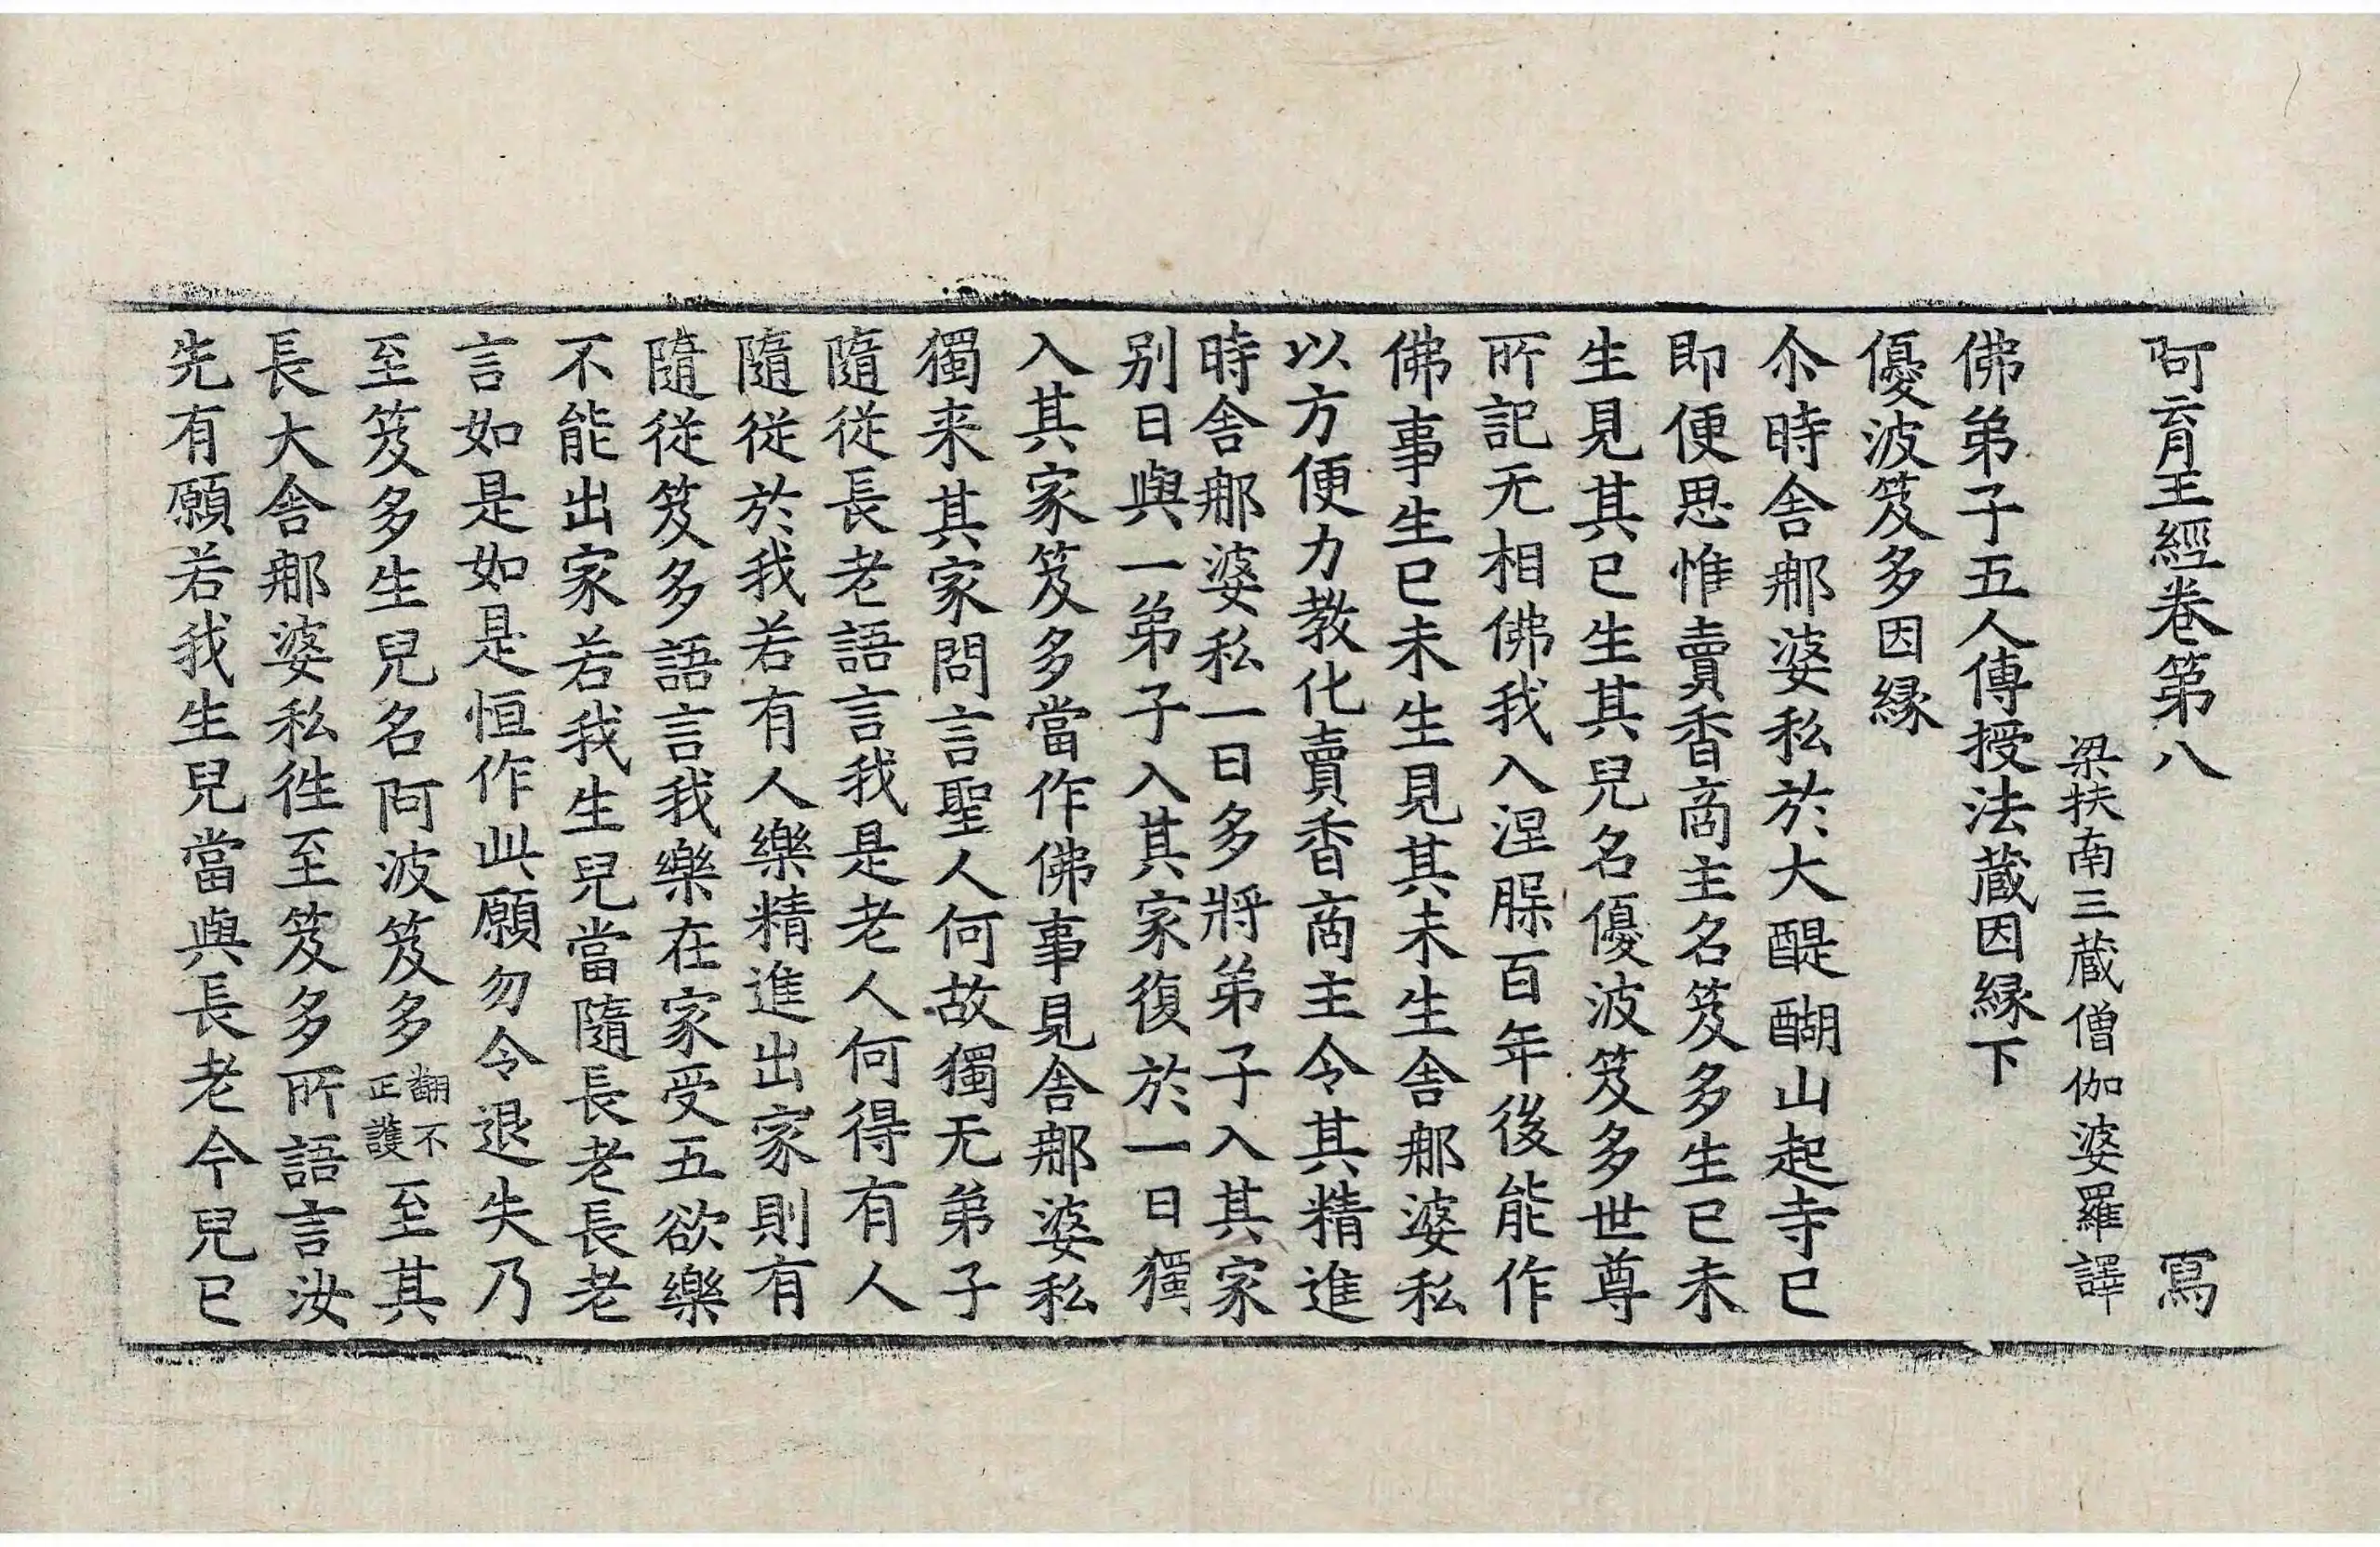 阿育王經卷第八 寫
梁扶南三藏僧伽婆羅譯
佛弟子五人傳授法藏因縁下
優波笈多因縁
尒時舍那婆私於大醍醐山起寺已
即便思惟賣香商主名笈多生已未
生見其已生其兒名優波笈多世尊
所記无相佛我入涅脲百年後能作
佛事生已未生見其未生舍那婆私
以方便力教化賣香商主令其精進
時舍那婆私一日多將弟子入其家
别日與一弟子入其家復於一日獨
入其家笈多當作佛事見舍那婆私
獨来其家問言聖人何故獨无弟子
隨從長老語言我是老人何得有人
隨從於我若有人樂精進出家則有
隨從笈多語言我樂在家受五欲樂
不能出家若我生兒當隨長老長老
言如是如是恒作此願勿令退失乃
至笈多生兒名阿波笈多翻不正護至其
長大舍那婆私徃至笈多所語言汝
先有願若我生兒當與長老今兒已